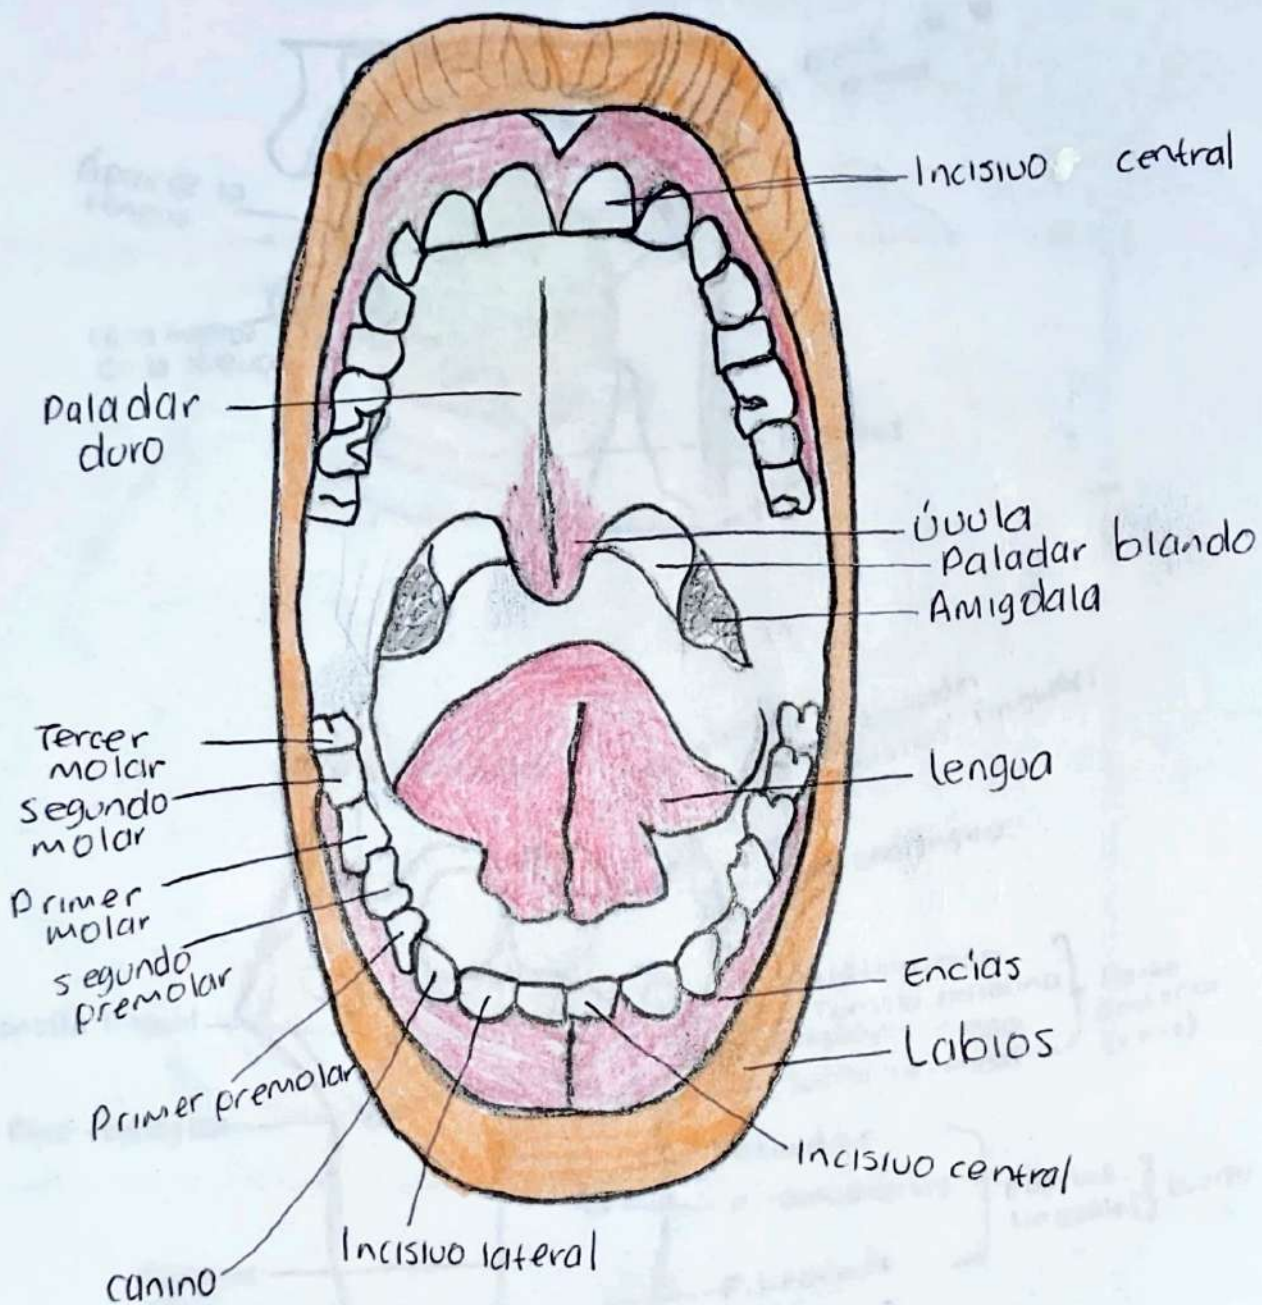 Incisivo central
Paladar
duro
Úvula
Paladar blando
Amigdala
Tercer
molar
segundo
molar
Primer
molar
segundo
premolar
Primer premolar
canino
Incisivo lateral
lengua
Encías
Labios
Incisivo central